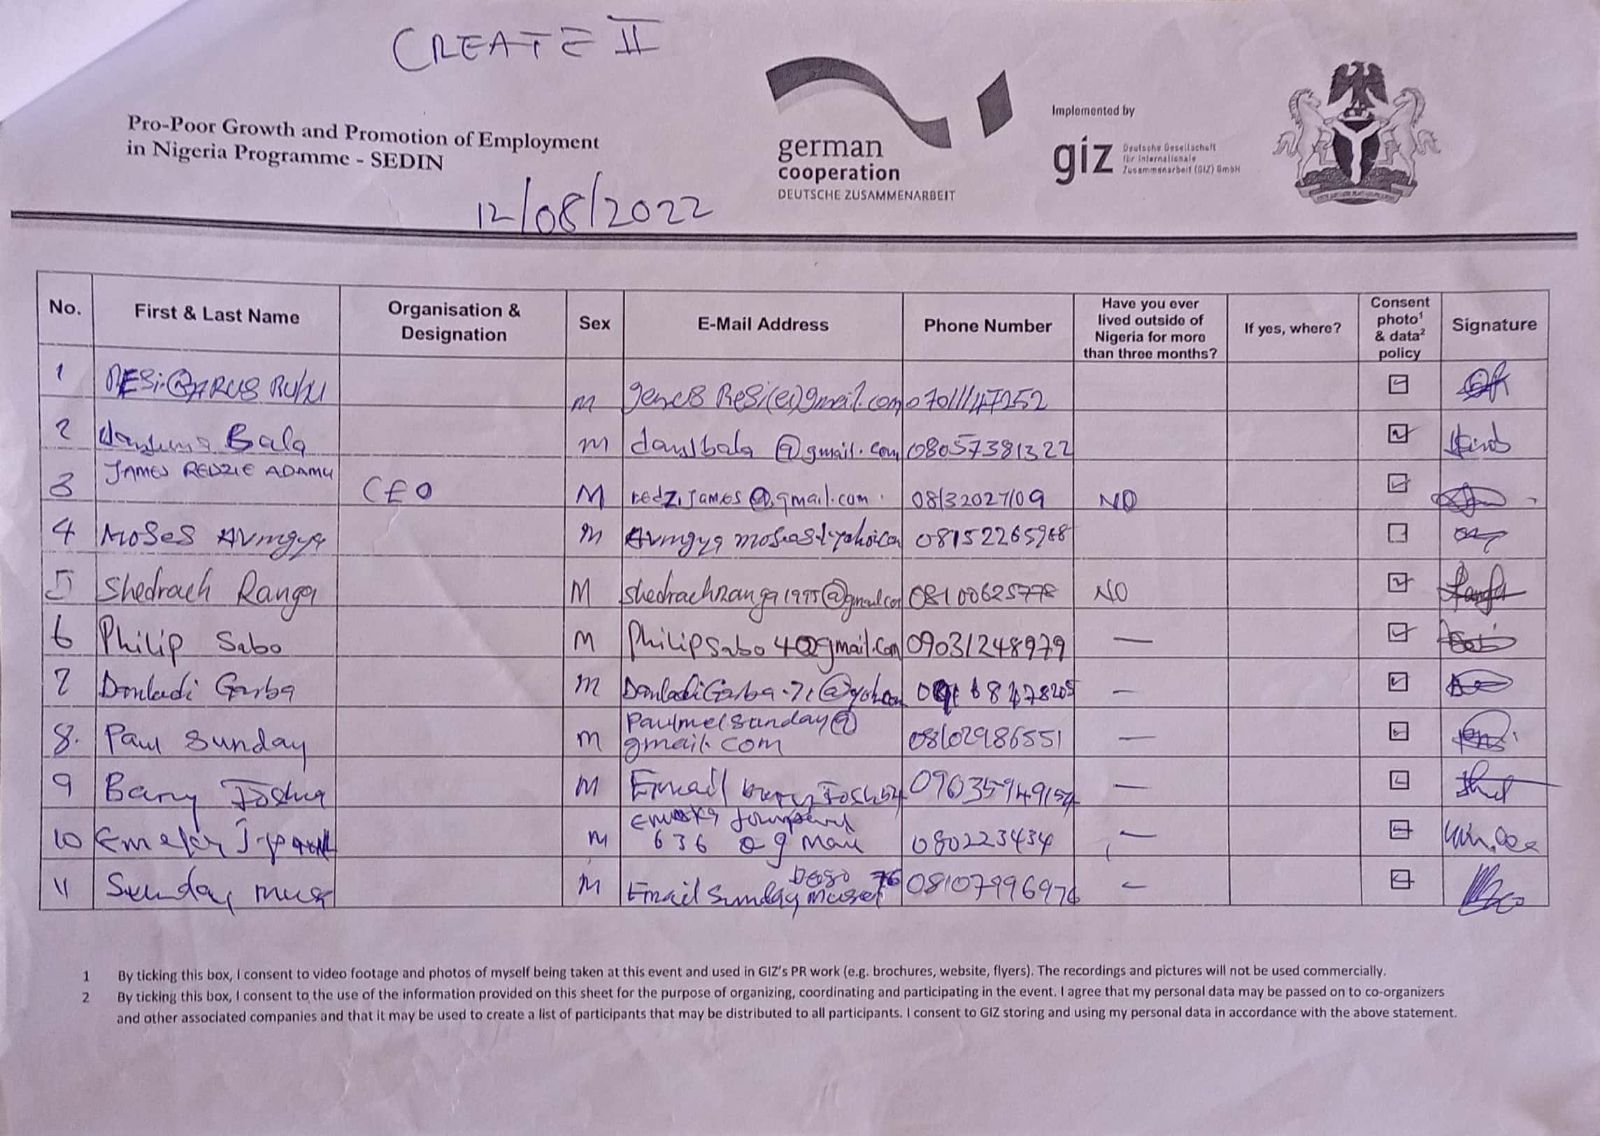 CREATE II
Pro-Poor Growth and Promotion of Employment
in Nigeria Programme - SEDIN
12/08/2022
german
cooperation
DEUTSCHE ZUSAMMENARBEIT
Implemented by
giz
Deutsche Gesellschaft
für Internationale
Zusammenarbeit (GIZ) GmbH
No. First & Last Name Organisation & Designation Sex E-Mail Address Phone Number Have you ever lived outside of Nigeria for more than three months? If yes, where? Consent photo1 & data2 policy Signature
1 m
2 Bala m danlbala @gmail.com 08057381322
3 JAMES REDZIE ADAMU CEO M redzijames@gmail.com. 08132027109 NO
4 MoSeS AVmgya m 08152265968
5 Shedrach Ranga M shedrachranga1995@gmail.com 08100625778 NO
6 Philip Sabo M PhilipSabo40gmail.com 09031248979 —
7 Danladi Garba m —
8. Paul Sunday m Paulmelsunday@ gmail.com 08102986551 —
9 Barry Joshua M Email —
10 m 636 080223434 —
11 Sunday musa M Email Sunday 76 08107996976 —
1 By ticking this box, I consent to video footage and photos of myself being taken at this event and used in GIZ's PR work (e.g. brochures, website, flyers). The recordings and pictures will not be used commercially.
2 By ticking this box, I consent to the use of the information provided on this sheet for the purpose of organizing, coordinating and participating in the event. I agree that my personal data may be passed on to co-organizers
and other associated companies and that it may be used to create a list of participants that may be distributed to all participants. I consent to GIZ storing and using my personal data in accordance with the above statement.